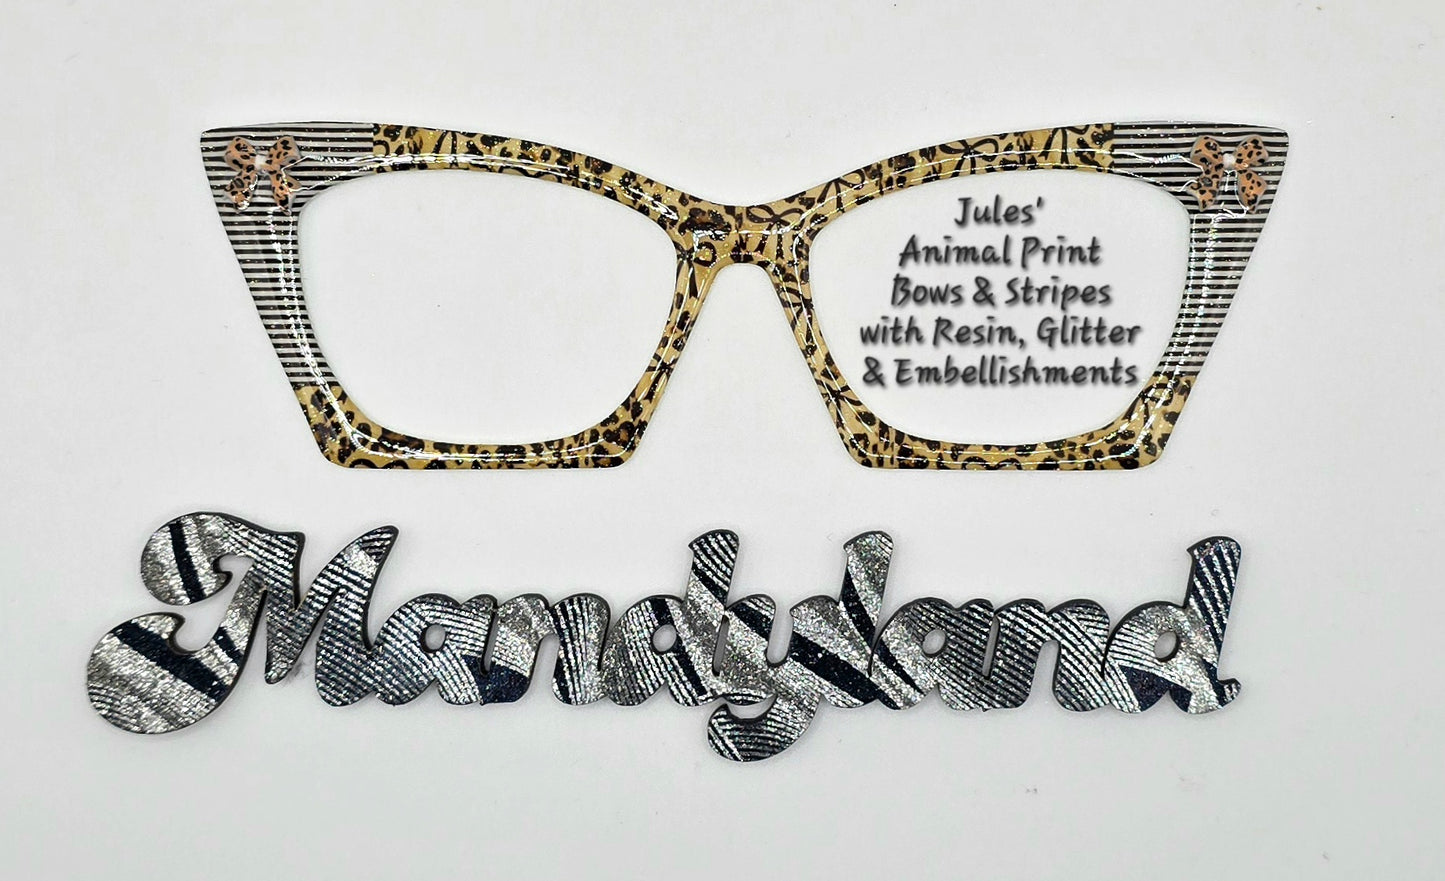 Jules'
Animal Print
Bows & Stripes
with Resin, Glitter
& Embellishments
Mandyland